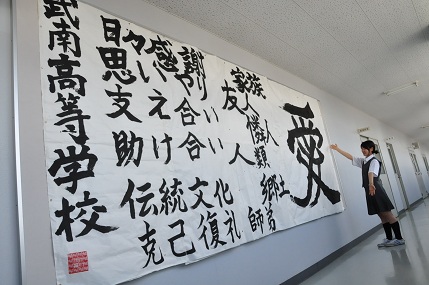 愛
家族
友人
隣人
人類
郷土
師弟
日々感謝
思いやり
支え合い
助け合い
伝統文化
克己復礼
武南高等学校